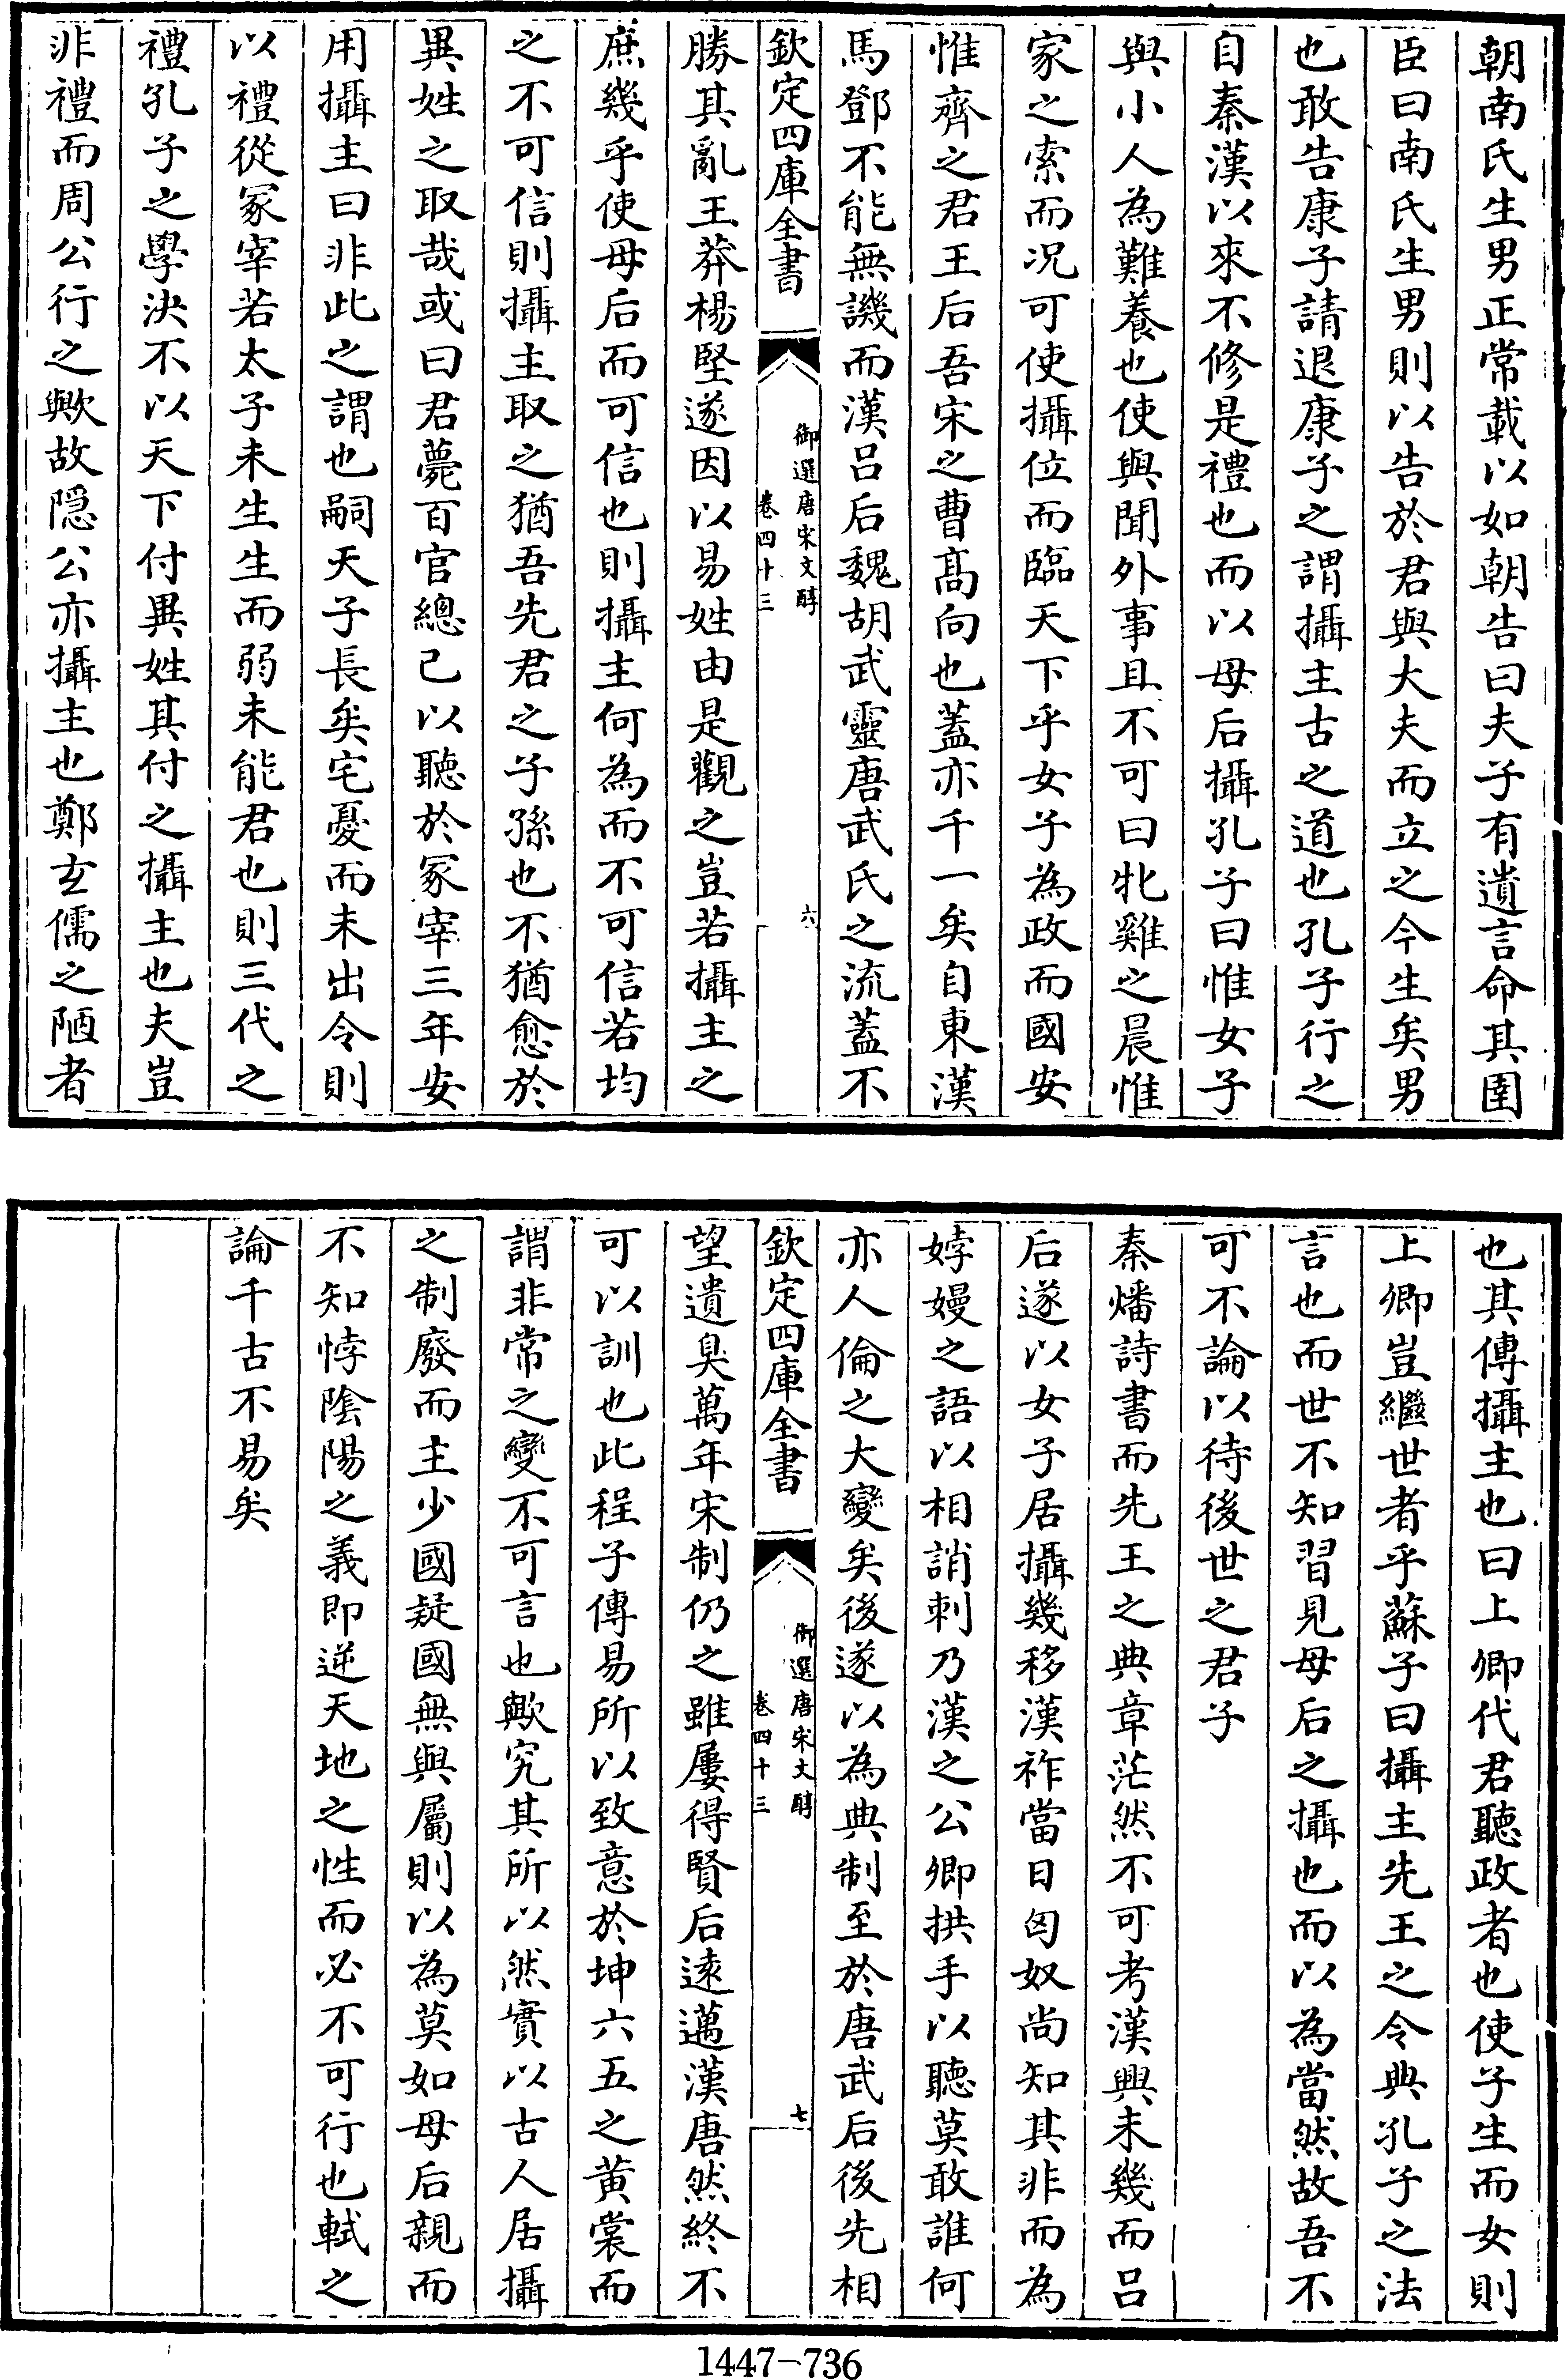 朝南氏生男正常載以如朝告曰夫子有遺言命其圉
臣曰南氏生男則以告於君與大夫而立之今生矣男
也敢告康子請退康子之謂攝主古之道也孔子行之
自秦漢以來不修是禮也而以母后攝孔子曰惟女子
與小人為難養也使與聞外事且不可曰牝雞之晨惟
家之索而况可使攝位而臨天下乎女子為政而國安
惟齊之君王后吾宋之曹髙向也蓋亦千一矣自東漢
馬鄧不能無譏而漢吕后魏胡武靈唐武氏之流蓋不
欽定四庫全書
御選唐宋文醇
卷四十三
六
勝其亂王莽楊堅遂因以易姓由是觀之豈若攝主之
庶幾乎使母后而可信也則攝主何為而不可信若均
之不可信則攝主取之猶吾先君之子孫也不猶愈於
異姓之取哉或曰君薨百官總己以聽於冢宰三年安
用攝主曰非此之謂也嗣天子長矣宅憂而未出令則
以禮從冢宰若太子未生生而弱未能君也則三代之
禮孔子之學決不以天下付異姓其付之攝主也夫豈
非禮而周公行之歟故隠公亦攝主也鄭玄儒之陋者
也其傳攝主也曰上卿代君聽政者也使子生而女則
上卿豈繼世者乎蘇子曰攝主先王之令典孔子之法
言也而世不知習見母后之攝也而以為當然故吾不
可不論以待後世之君子
秦燔詩書而先王之典章茫然不可考漢興未幾而吕
后遂以女子居攝幾移漢祚當日匈奴尚知其非而為
婞嫚之語以相誚刺乃漢之公卿拱手以聽莫敢誰何
亦人倫之大變矣後遂以為典制至於唐武后後先相
欽定四庫全書
御選唐宋文醇
卷四十三
七
望遺臭萬年宋制仍之雖屢得賢后逺邁漢唐然終不
可以訓也此程子傳易所以致意於坤六五之黄裳而
謂非常之變不可言也歟究其所以然實以古人居攝
之制廢而主少國疑國無與屬則以為莫如母后親而
不知悖陰陽之義即逆天地之性而必不可行也軾之
論千古不易矣
1447-736